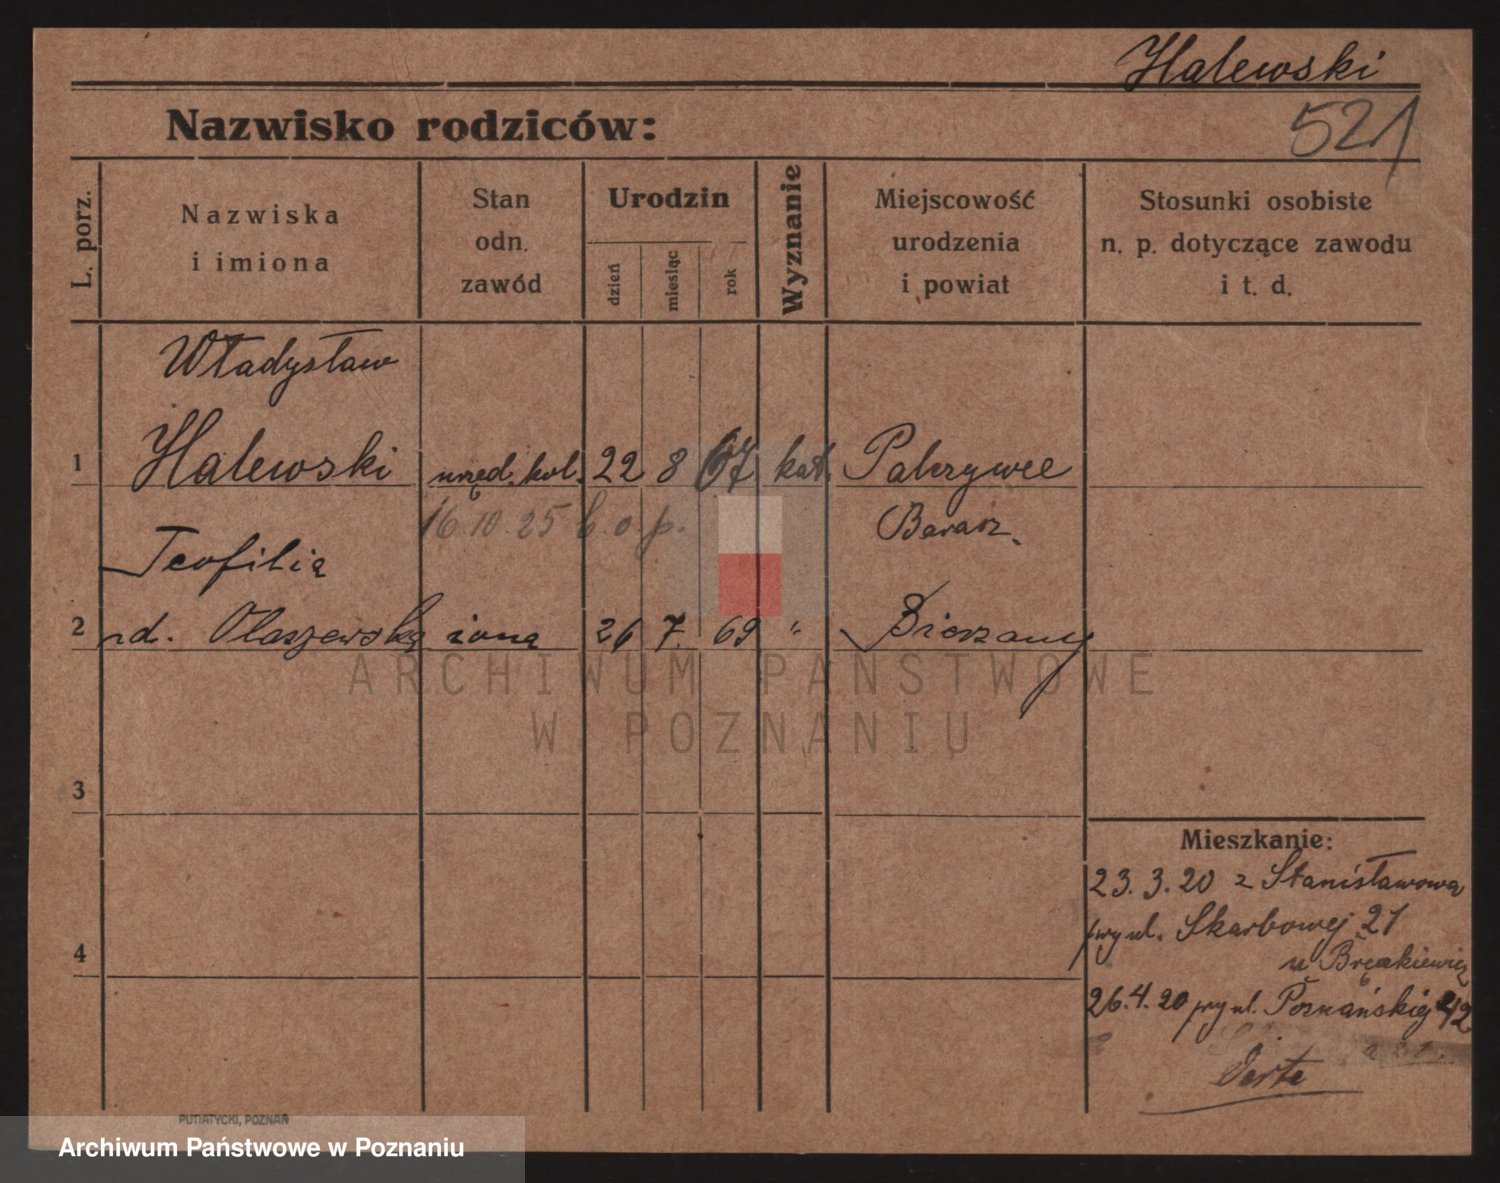 Halewski
521
Nazwisko rodziców:
L. porz.
Nazwiska
i imiona
Stan
odn.
zawód
Urodzin
dzień
miesiąc
rok
Wyznanie
Miejscowość
urodzenia
i powiat
Stosunki osobiste
n. p. dotyczące zawodu
i t. d.
Władysław
1 Halewski urzęd. kol. 22 8 67 kat.
16.10.25
Teofilia
2 Olaszewska żona 26 7. 69 "
3
Mieszkanie:
23.3.20 z Stanisławowa
przy ul. Skarbowej 21
4
26.4.20 przy ul. Poznańskiej 42
ARCHIWUM PAŃSTWOWE
W POZNANIU
PUTIATYCKI, POZNAŃ
Archiwum Państwowe w Poznaniu